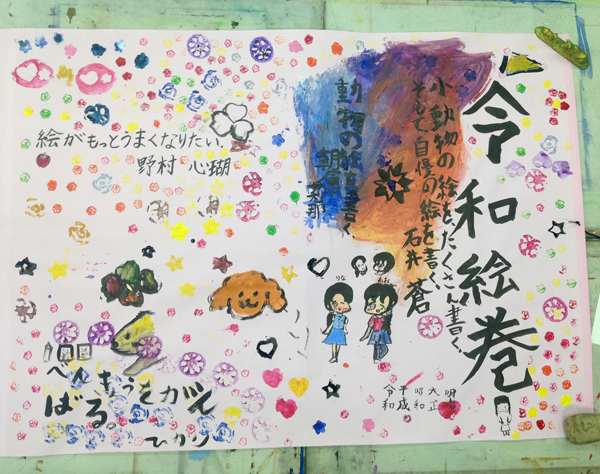 令和絵巻
小動物の絵をたくさん書く。
そして自慢の絵を書く。
石井 蒼
動物の絵を書く
絵がもっとうまくなりたい。
野村 心瑚
りな
明治
大正
昭和
平成
令和
べんきょうをがん
ばる。
ひかり